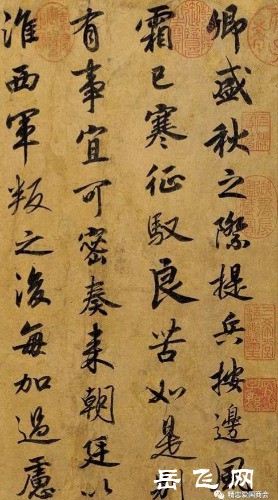 卿盛秋之際提兵按邊風
霜已寒征馭良苦如是
有事宜可密奏来朝廷以
淮西軍叛之後每加過慮
岳飞网
精忠爱国商会